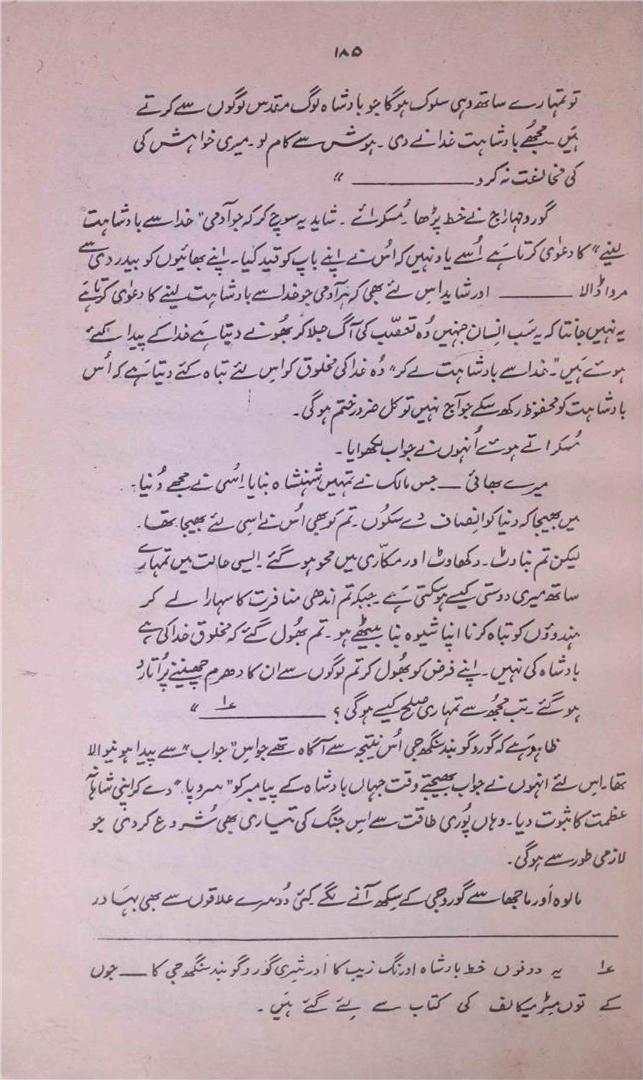 ۱۸۵
تو تمہارے ساتھ وہی سلوک ہوگا جو بادشاہ لوگ مقدس لوگوں سے کرتے
ہیں۔ مجھے بادشاہت خدا نے دی۔ ہوش سے کام لو۔ میری خواہش کی
کی مخالفت نہ کرو ــــــــــــــ "
گورو مہاراج نے خط پڑھا۔ مُسکرائے۔ شاید یہ سوچ کر کہ جو آدمی "خدا سے بادشاہت
لینے" کا دعوٰی کرتا ہے اُسے یاد نہیں کہ اُس نے اپنے باپ کو قید کیا۔ اپنے بھائیوں کو بیدردی سے
مروا ڈالا ــــــــ اور شاید اس لئے بھی کہ ہر آدمی جو خدا سے بادشاہت لینے کا دعوٰی کرتا ہے
یہ نہیں جانتا کہ یہ سَب انسان جنہیں وُہ تعصّب کی آگ جلا کر بھُونے دیتا ہے خدا کے پیدا کئے
ہوئے ہیں "۔ خدا سے بادشاہت لے کر" وُہ خدا کی مخلوق کو اس لئے تباہ کئے دیتا ہے کہ اُس
بادشاہت کو محفوظ رکھ سکے جو آج نہیں تو کل ضرور ختم ہوگی۔
مُسکراتے ہوئے اُنہوں نے جواب لکھوایا۔
میرے بھائی ـــ جس مالک نے تمہیں شہنشاہ بنایا اُسی نے مجھے دُنیا۔
میں بھیجا کہ دنیا کو انصاف دے سکوں۔ تم کو بھی اُس نے اسی لئے بھیجا تھا۔
لیکن تم بناوٹ۔ دکھاوٹ اور مکاّری میں محو ہو گئے۔ ایسی حالت میں تمہارے
ساتھ میری دوستی کیسے ہو سکتی ہے۔ جبکہ تم اندھی منافرت کا سہارا لے کر
ہندوؤں کو تباہ کرنا اپنا شیوہ بنا بیٹھے ہو۔ تم بھُول گئے کہ مخلوق خدا کی ہے
بادشاہ کی نہیں۔ اپنے فرض کو بھُول کر تم لوگوں سے ان کا دھرم چھیننے پر اُتارُو
ہو گئے۔ تب مجھ سے تمہاری صلح کیسے ہوگی؟ ــــــ ؏۱ ــــــ "
ظاہر ہے کہ گورو گوبند سنگھ جی اُس نتیجہ سے آگاہ تھے جو اس "جواب" سے پیدا ہونیوالا
تھا۔ اس لئے انہوں نے جواب بھیجتے وقت جہاں بادشاہ کے پیامبر کو "سروپا" دے کر اپنی شاہانہ
عظمت کا ثبوت دیا۔ وہاں پوُری طاقت سے اس جنگ کی تیاری بھی شُروع کر دی جو
لازمی طور سے ہوگی۔
مالوہ اَور ماجھا سے گورو جی کے سِکھ آنے لگے کئی دُوسرے علاقوں سے بھی بہادر
؏۱ یہ دونوں خط بادشاہ اورنگ زیب کا اَور شِری گورو گوبند سنگھ جی کا ـــ جوں
کے توں مِسٹر میکالف کی کتاب سے لِئے گئے ہیں۔